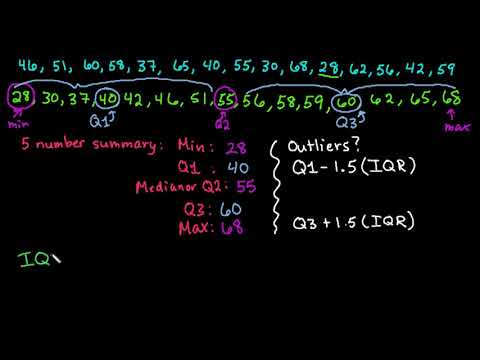 46, 51, 60, 58, 37, 65, 40, 55, 30, 68, 28, 62, 56, 42, 59
28, 30, 37, 40 42, 46, 51, 55, 56, 58, 59, 60 62, 65, 68
min Q1 Q2 Q3 max
5 number summary: Min: 28
Q1 : 40
Median or Q2: 55
Q3: 60
Max: 68
Outliers?
Q1 - 1.5 (IQR)
Q3 + 1.5 (IQR)
IQ